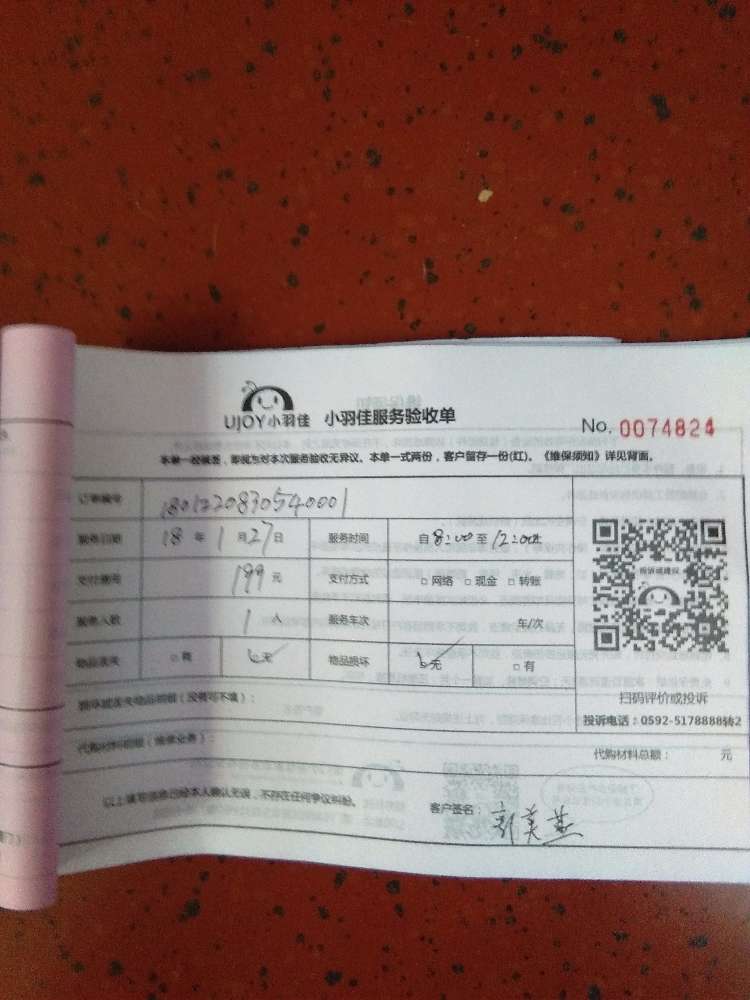 UJOY小羽佳 小羽佳服务验收单
No. 0074824
本单一经签署，即视为对本次服务验收无异议。本单一式两份，客户留存一份(红)。《维保须知》详见背面。
订单编号 1801220830540001
服务日期 18 年 1 月 27 日 服务时间 自 8:00 至 12:00
支付费用 199 元 支付方式 □ 网络 □ 现金 □ 转账
投诉或建议
服务人数 1 人 服务车次 车/次
物品丢失 □ 有 无 物品损坏 无 □ 有
扫码评价或投诉
损坏或丢失物品明细（没有可不填）：
投诉电话：0592-5178888转2
代购材料明细（维修业务）： 代购材料总额： 元
以上填写信息已经本人确认无误，不存在任何争议纠纷。 客户签名：
美燕